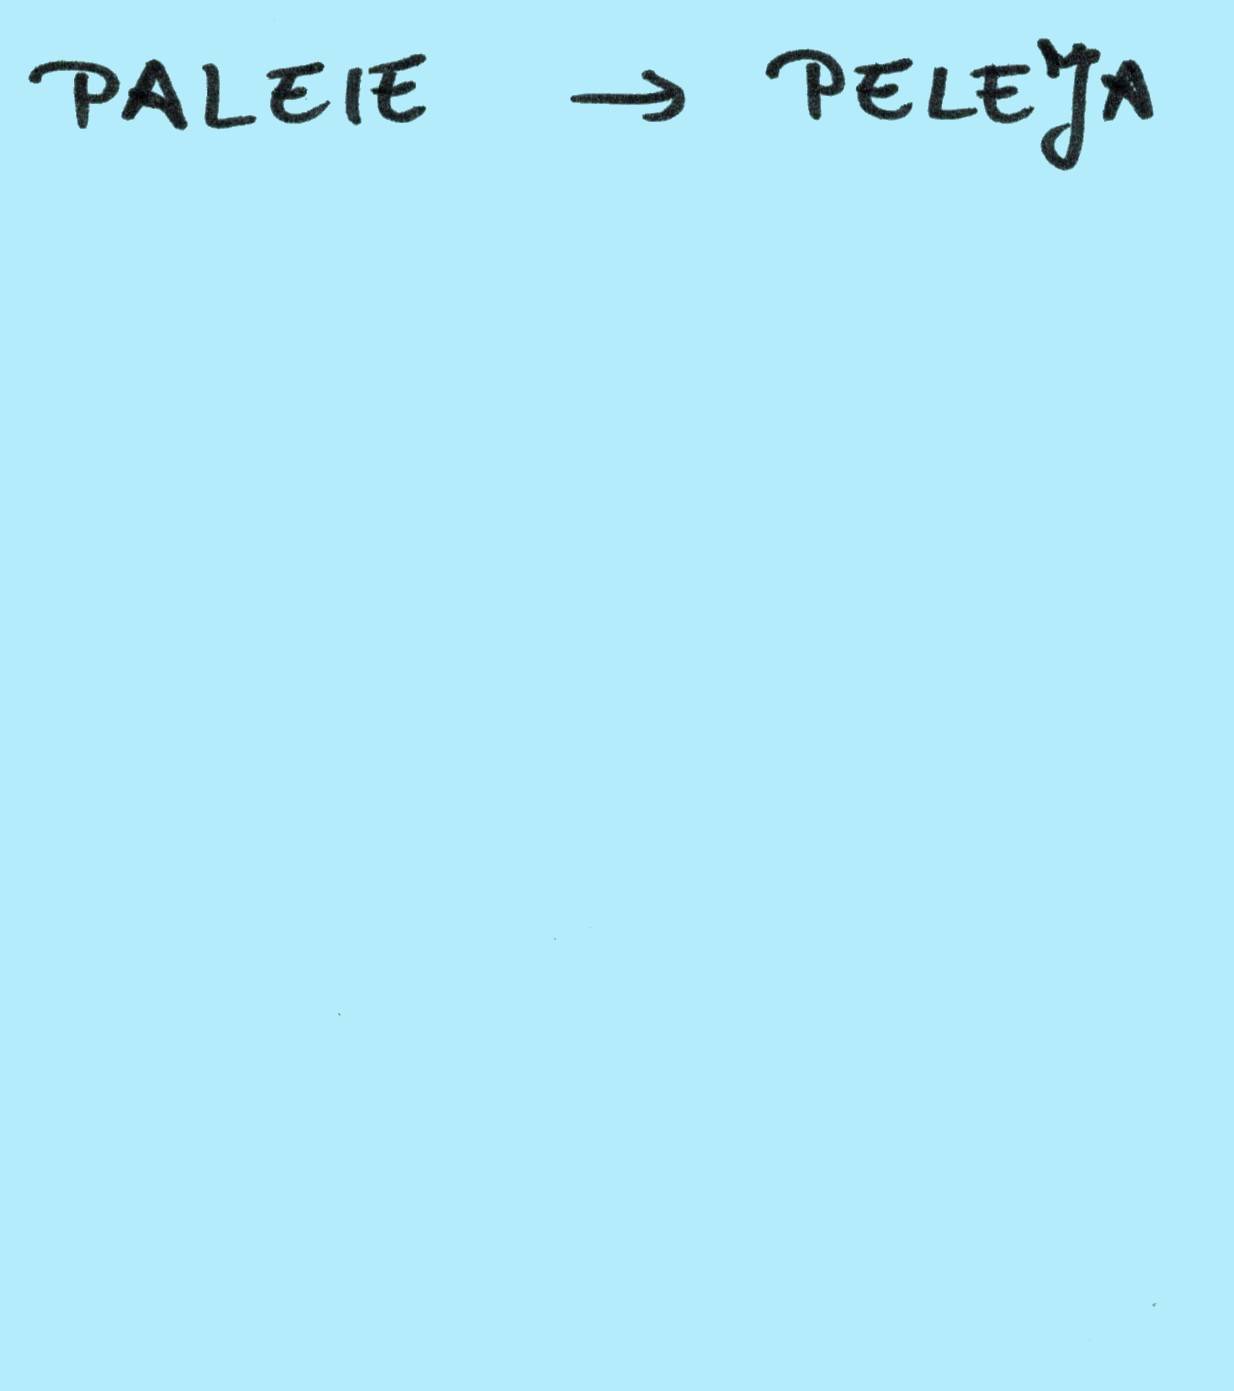 PALEIE → PELEJA